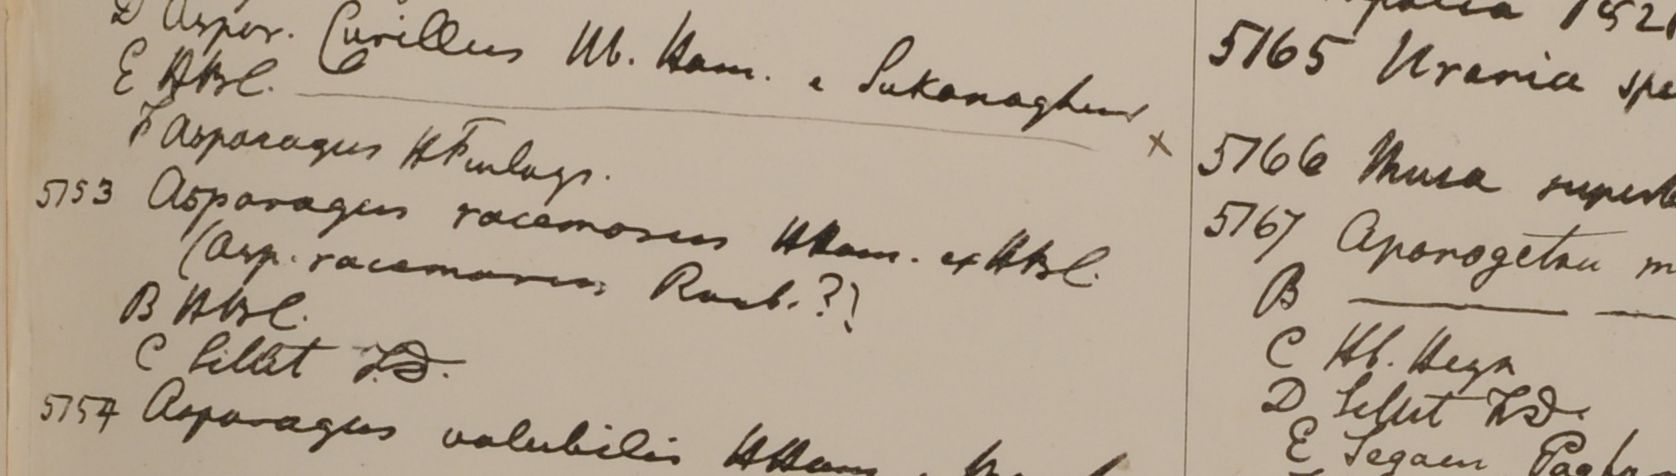 D Aspar. Curillus Hb. Ham. e Sukanaghur
E HBC.
F Asparagus H Finlays.
5153 Asparagus racemosus HHam. ex HBC.
(Asp. racemosus Roxb.?)
B HBC.
C Sillet F.D.
5154 Asparagus volubilis HHam.
1521
5165 Urania spe
5166 Musa superb
5167 Aponogeton m
B — —
C Hb. Heyn
D Sillet F.D.
E Segaen